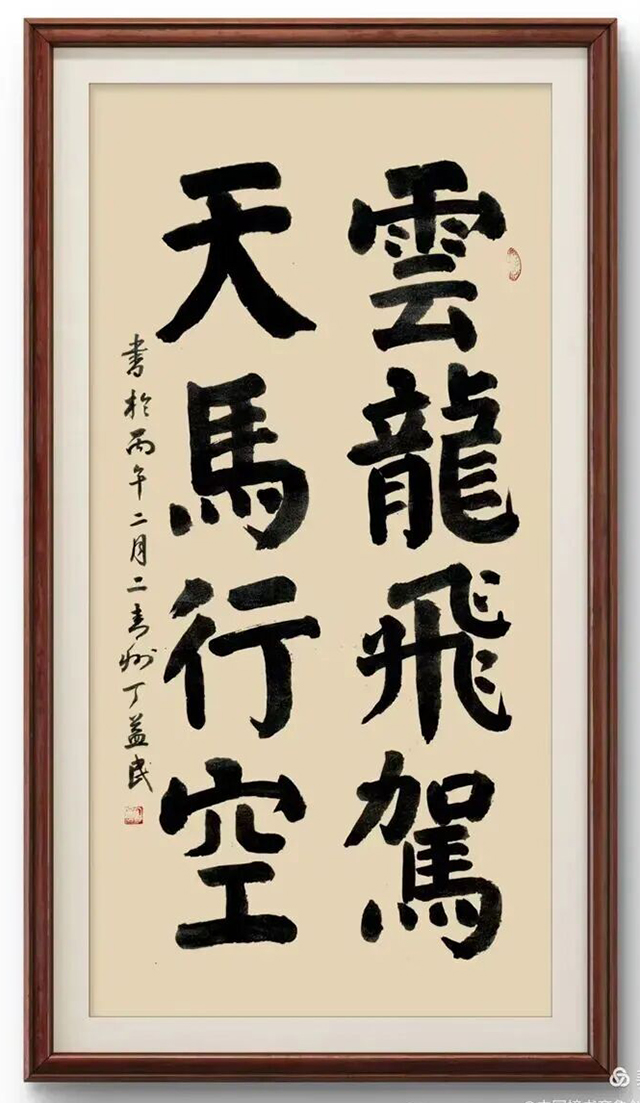 雲龍飛駕
天馬行空
書於丙午二月二青州丁益民